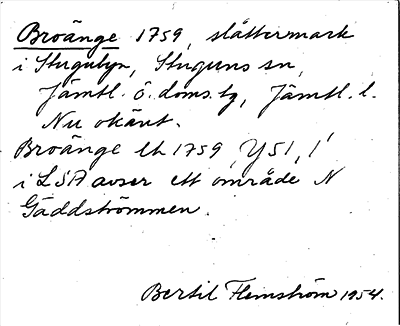 Broänge 1759, slåttermark
i Stugubyn, Stuguns sn,
Jämtl. ö. doms. tg, Jämtl. l.
Nu okänt.
Broänge lh 1759, Y51, 1'
i LSA avser ett område N
Gäddströmmen.
Bertil Flemström 1954.